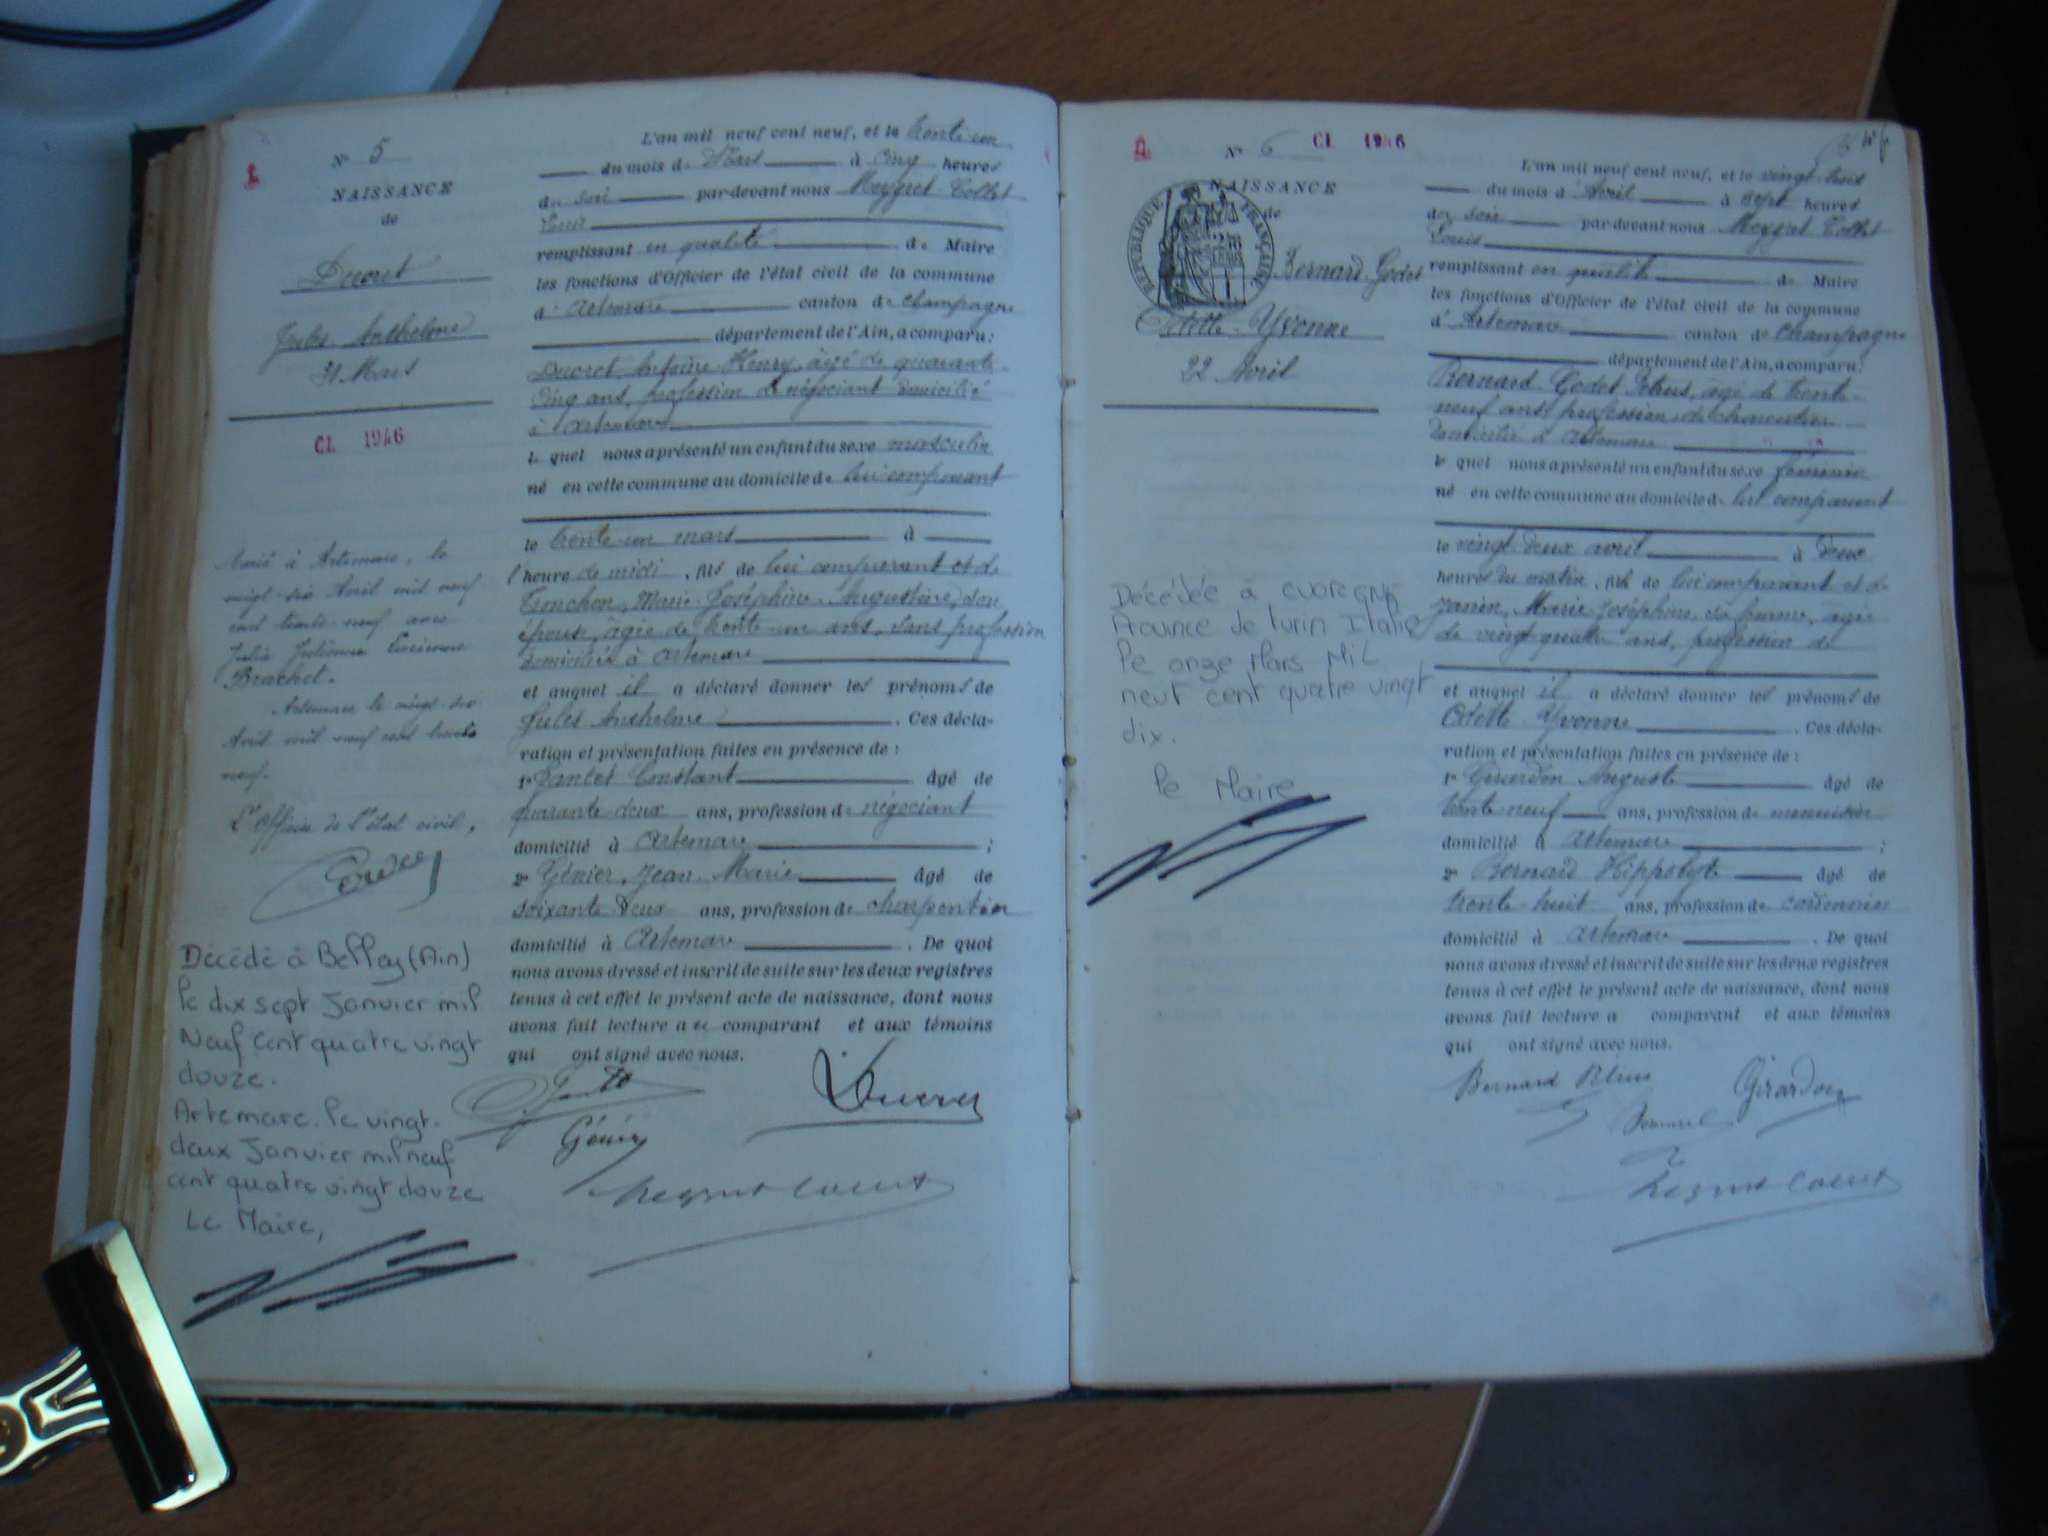 N° 5
NAISSANCE
de
Ducret
Jules Anthelme
31 Mars
CL 1946
Marié à Artemare, le
vingt-six Avril mil neuf
cent trente neuf avec
Julie
Brachet.
Artemare le vingt-six
Avril mil neuf cent trente
neuf.
L'Officier de l'état civil,
Décédé à Belley (Ain)
le dix sept Janvier mil
Neuf Cent quatre vingt
douze.
Artemare. le vingt.
deux Janvier mil neuf
cent quatre vingt douze
Le Maire,
L'an mil neuf cent neuf, et le trente-un
du mois de Mars à cinq heures
du soir par-devant nous Meygret-Collet
Louis
remplissant en qualité de Maire
les fonctions d'Officier de l'état civil de la commune
d' Artemare canton de Champagne
département de l'Ain, a comparu:
Ducret, Antoine Henry, âgé de quarante-
cinq ans, profession de négociant domicilié
à Artemare
le quel nous a présenté un enfant du sexe masculin
né en cette commune au domicile de lui comparant
le trente-un mars à
l'heure de midi, fils de lui comparant et de
Tronchon, Marie-Joséphine-Augustine, son
épouse, âgée de trente-un ans, sans profession
domiciliés à Artemare
et auquel il a déclaré donner les prénoms de
Jules Anthelme. Ces décla-
ration et présentation faites en présence de :
1° Constant âgé de
quarante-deux ans, profession de négociant
domicilié à Artemare ;
2° Génier, Jean-Marie âgé de
soixante-deux ans, profession de charpentier
domicilié à Artemare. De quoi
nous avons dressé et inscrit de suite sur les deux registres
tenus à cet effet le présent acte de naissance, dont nous
avons fait lecture au comparant et aux témoins
qui ont signé avec nous.
Ducret
Génier
Meygret Collet
N° 6 CL 1946
NAISSANCE
de
RÉPUBLIQUE FRANÇAISE
Bernard-Godet
Odette-Yvonne
22 Avril
Décédée à CUORGNE
Province de Turin Italie
le onze Mars Mil
neuf cent quatre vingt
dix.
le Maire
L'an mil neuf cent neuf, et le vingt-trois
du mois d'Avril à sept heures
du soir par-devant nous Meygret Collet
Louis
remplissant en qualité de Maire
les fonctions d'Officier de l'état civil de la commune
d' Artemare canton de Champagne
département de l'Ain, a comparu:
Bernard Godet, âgé de trente-
neuf ans, profession de charcutier
domicilié à Artemare
le quel nous a présenté un enfant du sexe féminin
né en cette commune au domicile de lui comparant
le vingt-deux avril à deux
heures du matin, fils de lui comparant et de
Janin, Marie-Joséphine, sa femme, âgée
de vingt-quatre ans, profession de
et auquel il a déclaré donner les prénoms de
Odette-Yvonne. Ces décla-
ration et présentation faites en présence de :
1° Girardon Auguste âgé de
trente-neuf ans, profession de menuisier
domicilié à Artemare ;
2° Bernard Hippolyte âgé de
trente-huit ans, profession de cordonnier
domicilié à Artemare. De quoi
nous avons dressé et inscrit de suite sur les deux registres
tenus à cet effet le présent acte de naissance, dont nous
avons fait lecture a comparant et aux témoins
qui ont signé avec nous.
Bernard
Girardon
Bernard
Meygret Collet